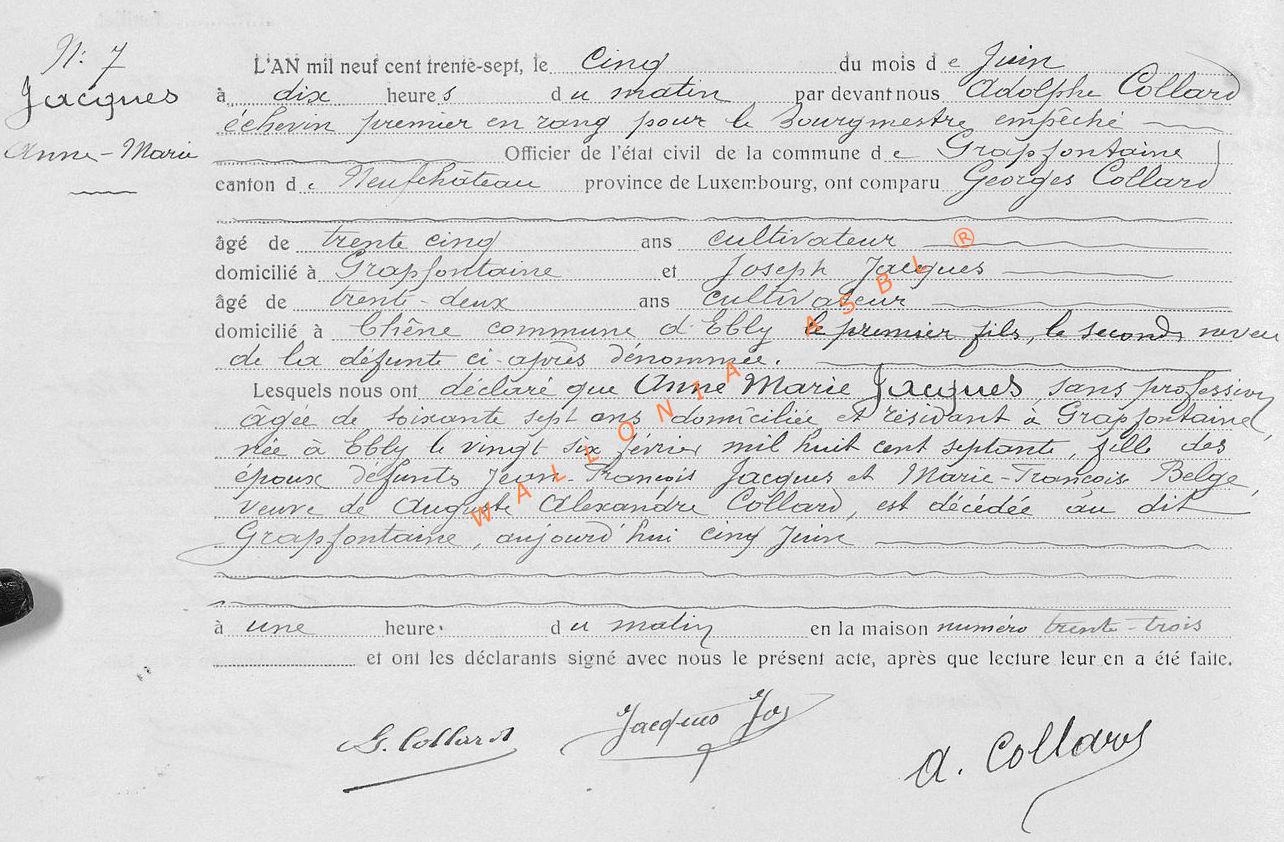 N: 7
Jacques
Anne-Marie
L'AN mil neuf cent trente-sept, le cinq du mois de Juin
à dix heures du matin par devant nous Adolphe Collard
échevin premier en rang pour le Bourgmestre empêché
Officier de l'état civil de la commune de Grapfontaine
canton de Neufchâteau province de Luxembourg, ont comparu Georges Collard
âgé de trente cinq ans cultivateur
domicilié à Grapfontaine et Joseph Jacques
âgé de trente-deux ans cultivateur
domicilié à Chêne commune d'Ebly le premier fils, le second neveu
de la défunte ci-après dénommée.
Lesquels nous ont déclaré que Anne Marie Jacques, sans profession
âgée de soixante sept ans domiciliée et résidant à Grapfontaine,
née à Ebly le vingt six février mil huit cent septante, fille des
époux défunts Jean-François Jacques et Marie-François Belge,
veuve de Auguste Alexandre Collard, est décédée au dit
Grapfontaine, aujourd'hui cinq Juin
à une heure du matin en la maison numéro trente-trois
et ont les déclarants signé avec nous le présent acte, après que lecture leur en a été faite.
G. Collard Jacques Jos
A. Collard
WALLONIA ASBL ®